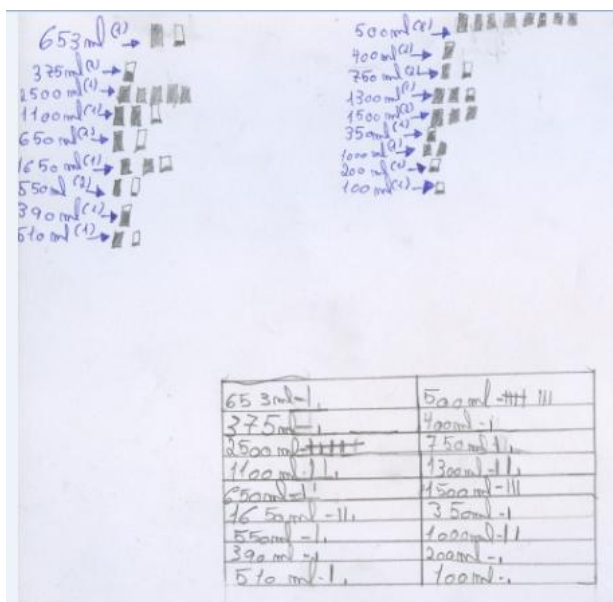 653ml (1) →
375ml (1) →
2500ml (1) →
1100ml (1) →
650ml →
1650ml (1) →
550ml →
390ml (1) →
510ml (1) →
500ml →
400ml →
750ml →
1300ml →
1500ml →
350ml (1) →
1000ml →
200ml (1) →
100ml (1) →
653ml-
500ml-
375ml-
400ml-
2500ml-
750ml
1100ml-
1300ml-
650ml-
1500ml-
1650ml-
350ml-
550ml-
1000ml-
390ml-
200ml-
510ml-
100ml-